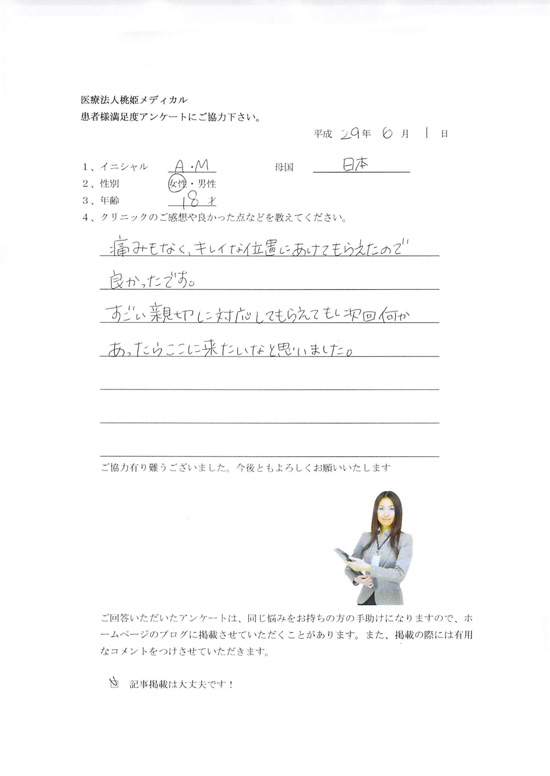 医療法人桃姫メディカル
患者様満足度アンケートにご協力下さい。
平成 29年 6 月 1 日
1、イニシャル A・M 母国 日本
2、性別 女性・男性
3、年齢 18才
4、クリニックのご感想や良かった点などを教えてください。
痛みもなく、キレイな位置にあけてもらえたので
良かったです。
すごい親切に対応してもらえてもし次回何か
あったらここに来たいなと思いました。
ご協力有り難うございました。今後ともよろしくお願いいたします
ご回答いただいたアンケートは、同じ悩みをお持ちの方の手助けになりますので、ホ
ームページのブログに掲載させていただくことがあります。また、掲載の際には有用
なコメントをつけさせていただきます。
記事掲載は大丈夫です！